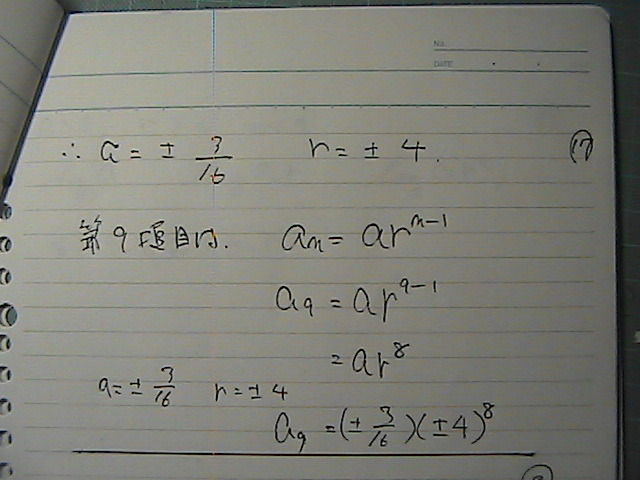 No.
DATE
∴ a = ± 3/16 r = ± 4. ⑰
第9項目は. aₙ = arⁿ⁻¹
a₉ = ar⁹⁻¹
= ar⁸
a = ± 3/16 r = ± 4
a₉ = (± 3/16)(± 4)⁸